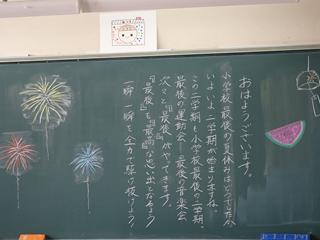 おはようございます。
小学校最後の夏休みはどうでしたか
いよいよ二学期が始まりますね。
この二学期も小学校最後の二学期、
最後の運動会…最後の音楽会
次々と『最後』がやってきます。
『最後』を『最高』な思い出となるよう
一瞬一瞬を全力で駆け抜けよう！